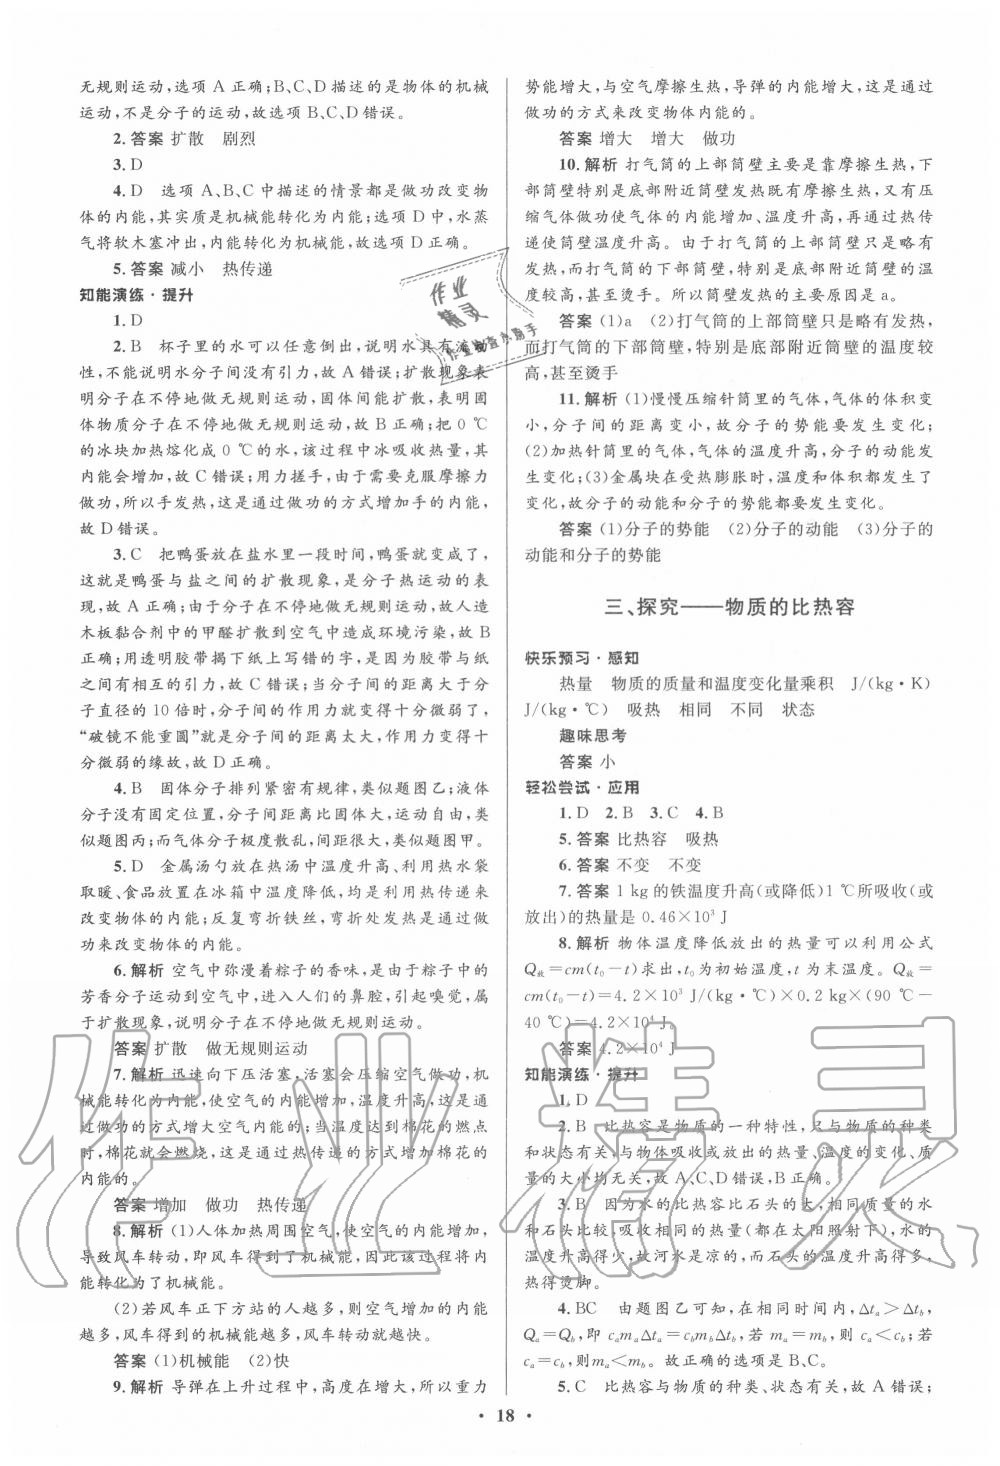 无规则运动,选项 A 正确;B、C、D 描述的是物体的机械
运动,不是分子的运动,故选项 B、C、D 错误。
2. 答案 扩散 剧烈
3. D
4. D 选项 A、B、C 中描述的情景都是做功改变物
体的内能,其实质是机械能转化为内能;选项 D 中,水蒸
气将软木塞冲出,内能转化为机械能,故选项 D 正确。
5. 答案 减小 热传递
知能演练·提升
1. D
2. B 杯子里的水可以任意倒出,说明水具有流动
性,不能说明水分子间没有引力,故 A 错误;扩散现象表
明分子在不停地做无规则运动,固体间能扩散,表明固
体物质分子在不停地做无规则运动,故 B 正确;把 0 ℃
的冰块加热熔化成 0 ℃ 的水,该过程中冰吸收热量,其
内能会增加,故 C 错误;用力搓手,由于需要克服摩擦力
做功,所以手发热,这是通过做功的方式增加手的内能,
故 D 错误。
3. C 把鸭蛋放在盐水里一段时间,鸭蛋就变咸了,
这就是鸭蛋与盐之间的扩散现象,是分子热运动的表
现,故 A 正确;由于分子在不停地做无规则运动,故人造
木板黏合剂中的甲醛扩散到空气中造成环境污染,故 B
正确;用透明胶带揭下纸上写错的字,是因为胶带与纸
之间有相互的引力,故 C 错误;当分子间的距离大于分
子直径的 10 倍时,分子间的作用力就变得十分微弱了,
“破镜不能重圆”就是分子间的距离太大,作用力变得十
分微弱的缘故,故 D 正确。
4. B 固体分子排列紧密有规律,类似题图乙;液体
分子没有固定位置,分子间距离比固体大,运动自由,类
似题图丙;而气体分子极度散乱,间距很大,类似题图甲。
5. D 金属汤勺放在热汤中温度升高、利用热水袋
取暖、食品放置在冰箱中温度降低,均是利用热传递来
改变物体的内能;反复弯折铁丝,弯折处发热是通过做
功来改变物体的内能。
6. 解析 空气中弥漫着粽子的香味,是由于粽子中的
芳香分子运动到空气中,进入人们的鼻腔,引起嗅觉,属
于扩散现象,说明分子在不停地做无规则运动。
答案 扩散 做无规则运动
7. 解析 迅速向下压活塞,活塞会压缩空气做功,机
械能转化为内能,使空气的内能增加,温度升高,这是通
过做功的方式增大空气内能的;当温度达到棉花的燃点
时,棉花就会燃烧,这是通过热传递的方式增加棉花的
内能的。
答案 增加 做功 热传递
8. 解析 (1)人体加热周围空气,使空气的内能增加,
导致风车转动,即风车得到了机械能,故该过程将内
能转化为了机械能。
(2)若风车正下方站的人越多,则空气增加的内能
越多,风车得到的机械能越多,风车转动就越快。
答案 (1)机械能 (2)快
9. 解析 导弹在上升过程中,高度在增大,所以重力
势能增大,与空气摩擦生热,导弹的内能增大,这是通过
做功的方式来改变物体内能的。
答案 增大 增大 做功
10. 解析 打气筒的上部筒壁主要是靠摩擦生热,下
部筒壁特别是底部附近筒壁发热既有摩擦生热,又有压
缩气体做功使气体的内能增加、温度升高,再通过热传
递使筒壁温度升高。由于打气筒的上部筒壁只是略有
发热,而打气筒的下部筒壁,特别是底部附近筒壁的温
度较高,甚至烫手。所以筒壁发热的主要原因是 a。
答案 (1)a (2)打气筒的上部筒壁只是略有发热,
而打气筒的下部筒壁,特别是底部附近筒壁的温度较
高,甚至烫手
11. 解析 (1)慢慢压缩针筒里的气体,气体的体积变
小,分子间的距离变小,故分子的势能发生变化;
(2)加热针筒里的气体,气体的温度升高,分子的动能发
生变化;(3)金属块在受热膨胀时,温度和体积都发生了
变化,故分子的动能和分子的势能都要发生变化。
答案 (1)分子的势能 (2)分子的动能 (3)分子的
动能和分子的势能
三、探究——物质的比热容
快乐预习·感知
热量 物质的质量和温度变化量乘积 J/(kg·K)
J/(kg·℃) 吸热 相同 不同 状态
趣味思考
答案 小
轻松尝试·应用
1. D 2. B 3. C 4. B
5. 答案 比热容 吸热
6. 答案 不变 不变
7. 答案 1 kg 的铁温度升高(或降低)1 ℃所吸收(或
放出)的热量是 0.46×10³ J
8. 解析 物体温度降低放出的热量可以利用公式
Q放=cm(t₀-t)求出,t₀为初始温度,t 为末温度。Q放=
cm(t₀-t)=4.2×10³ J/(kg·℃)×0.2 kg×(90 ℃-
40 ℃)=4.2×10⁴ J。
答案 4.2×10⁴ J
知能演练·提升
1. D
2. B 比热容是物质的一种特性,只与物质的种类
和状态有关,与物体吸收或放出的热量、温度的变化、质
量的大小均无关,故 A、C、D 错误,B 正确。
3. B 因为水的比热容比石头的大,相同质量的水
和石头比较,吸收相同的热量(都在太阳照射下),水的
温度升高得少,故河水是凉的,而石头的温度升高得多,
热得烫脚。
4. BC 由题图乙可知,在相同时间内,Δtₐ>Δt_b,
Qₐ=Q_b,即 cₐmₐΔtₐ=c_bm_bΔt_b,若 mₐ=m_b,则 cₐ<c_b;若
cₐ=c_b,则mₐ<m_b。故正确的选项是 B、C。
5. C 比热容与物质的种类、状态有关,故 A 错误;
· 18 ·
作业
精灵
作业精灵